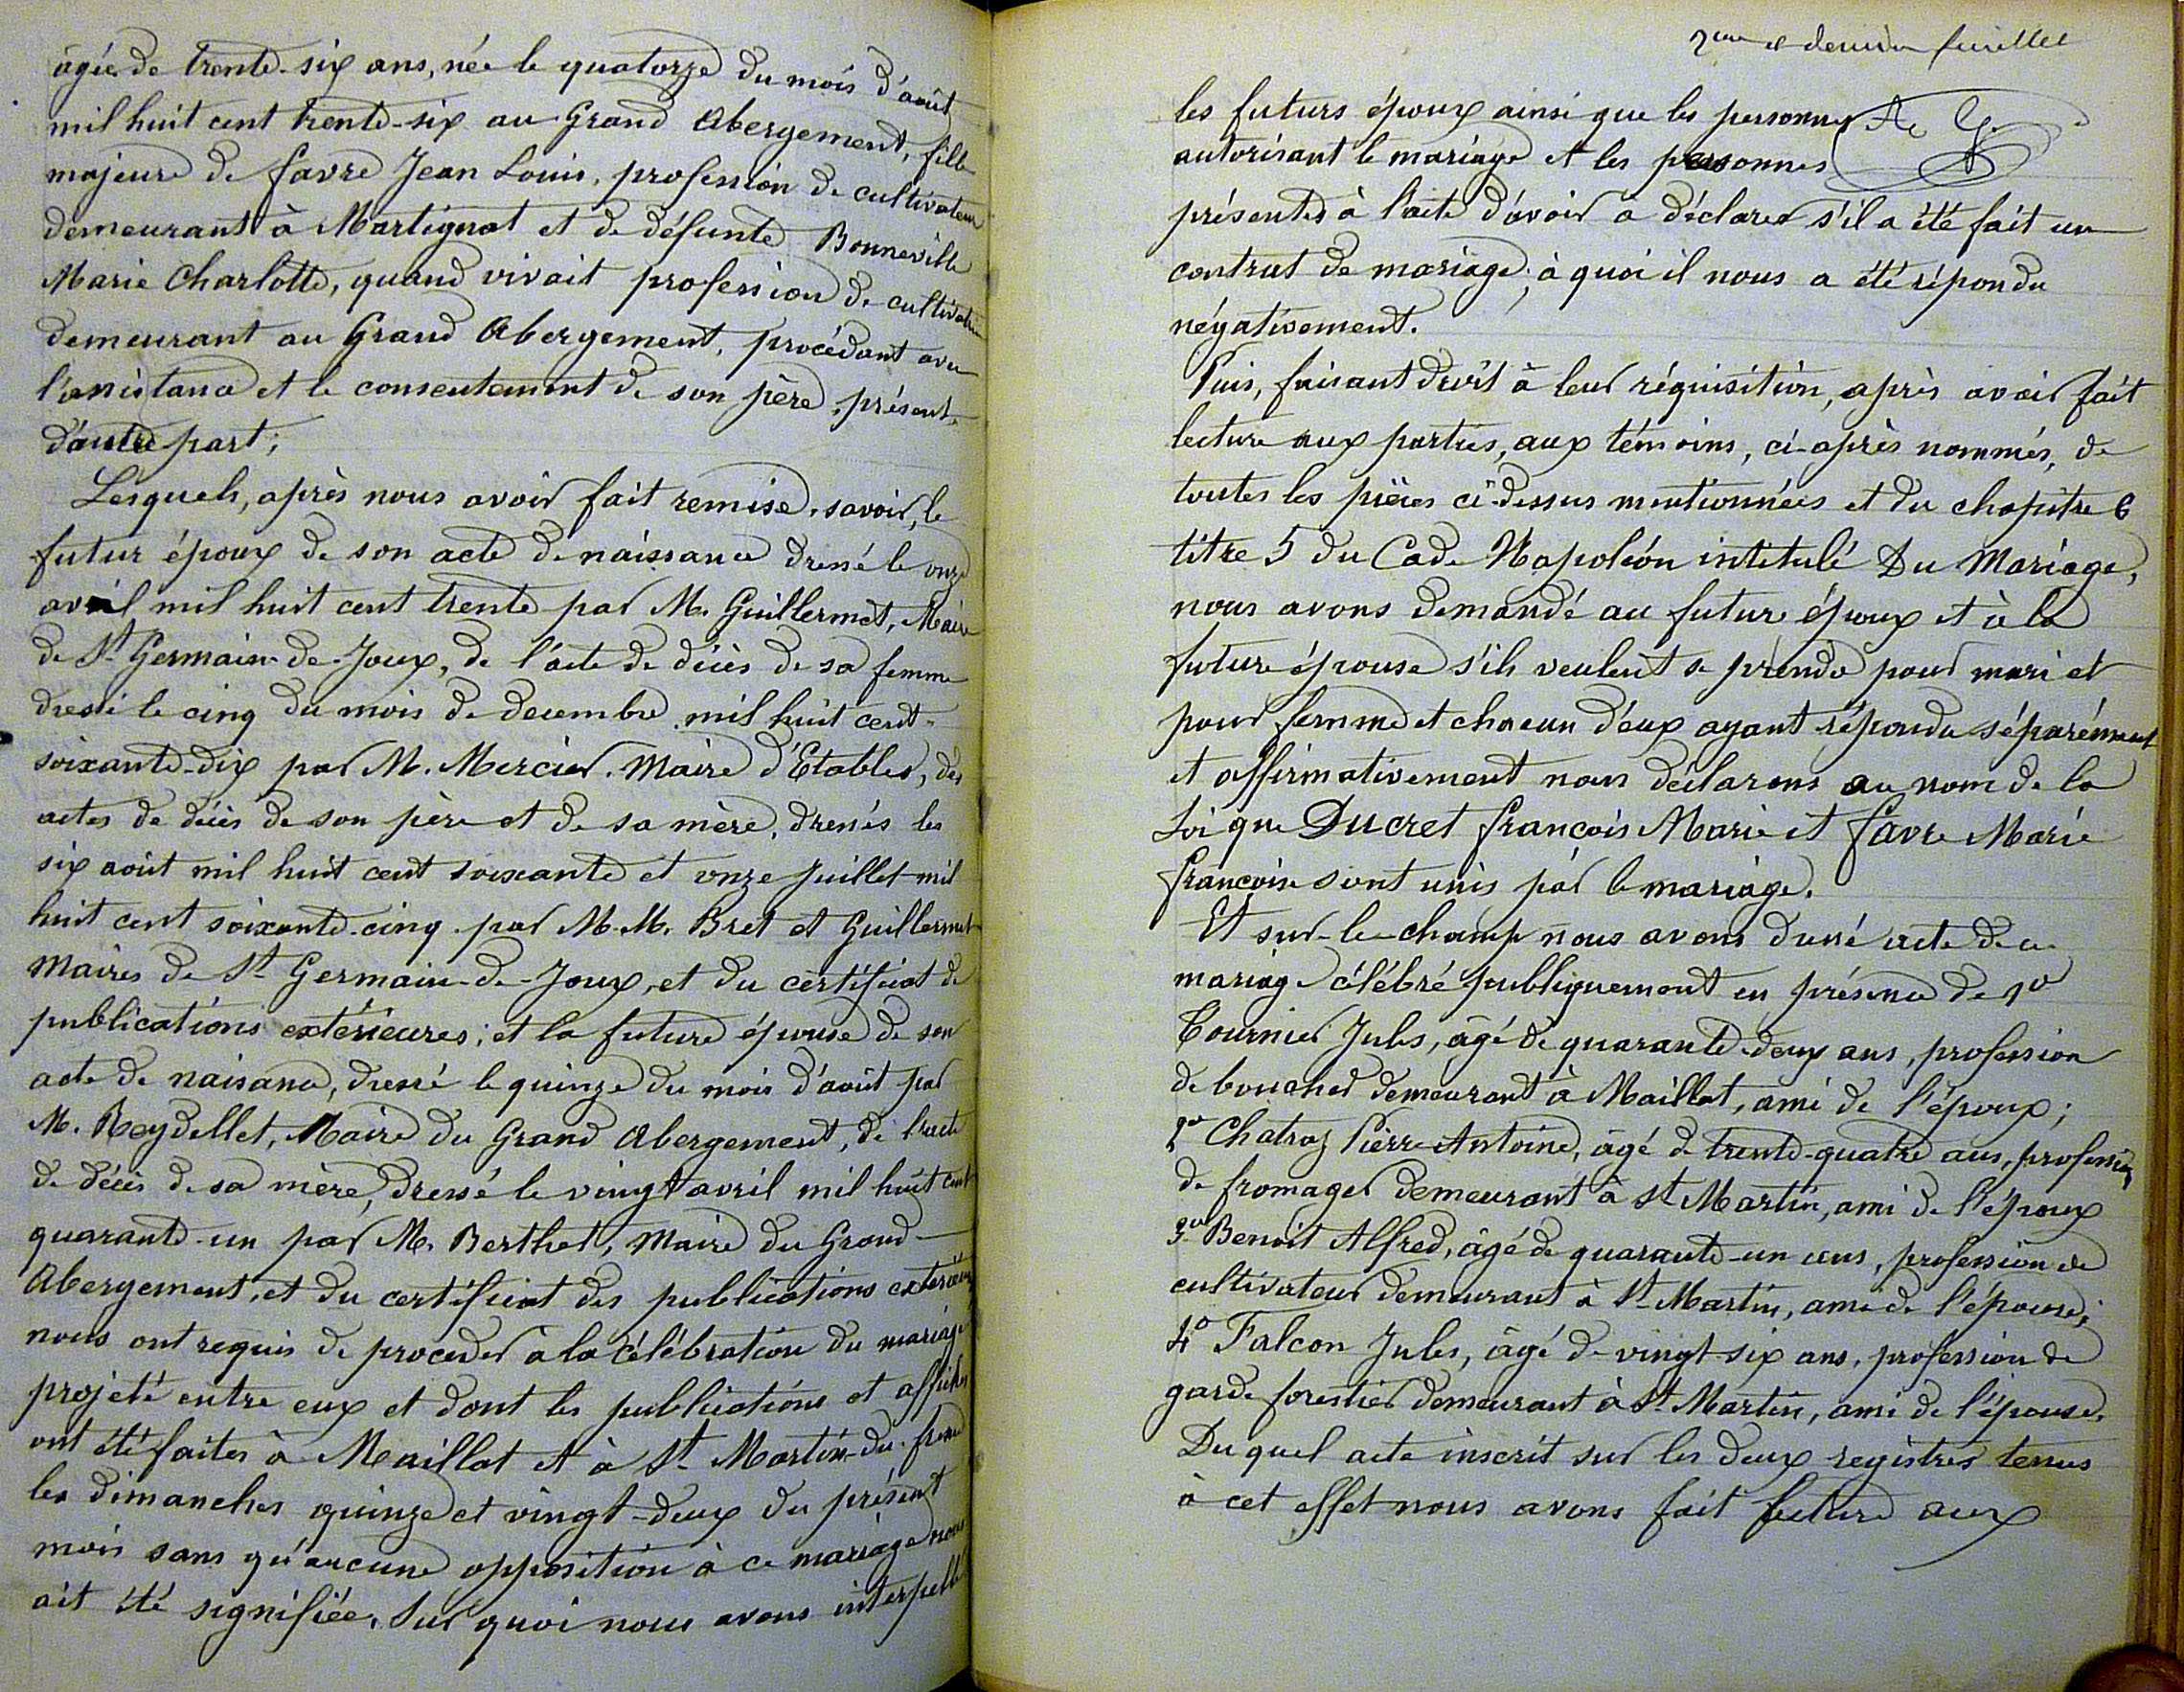 âgée de trente-six ans, née le quatorze du mois d'août
mil huit cent trente-six au Grand Abergement, fille
majeure de favre Jean Louis, profession de cultivateur
demeurant à Martignat et de défunte Bonneville
Marie Charlotte, quand vivait profession de cultivatrice
demeurant au Grand Abergement, procédant avec
l'assistance et le consentement de son père, présent
d'autre part;
Lesquels, après nous avoir fait remise, savoir, le
futur époux de son acte de naissance dressé le onze
avril mil huit cent trente par M. Guillermet, Maire
de St Germain-de-Joux, de l'acte de décès de sa femme
dressé le cinq du mois de decembre mil huit cent-
soixante-dix par M. Mercier, Maire d'Etables, des
actes de décès de son père et de sa mère, dressés les
six août mil huit cent soixante et onze Juillet mil
huit cent soixante-cinq par M.M. Bret et Guillermet
Maires de St Germain-de-Joux, et du certificat de
publications extérieures; et la future épouse de son
acte de naissance, dressé le quinze du mois d'août par
M. Reydellet, Maire du Grand Abergement, de l'acte
de décès de sa mère, dressé le vingt avril mil huit cent
quarante-un par M. Berthet, Maire du Grand-
Abergement, et du certificat des publications extérieures
nous ont requis de proceder à la célébration du mariage
projeté entre eux et dont les publications et affiches
ont été faites à Maillat et à St Martin-du-frene
les dimanches quinze et vingt-deux du présent
mois sans qu'aucune opposition à ce mariage nous
ait été signifiée. Sur quoi nous avons interpellé
2eme et dernier feuillet
les futurs époux ainsi que les personnes
autorisant le mariage et les personnes
présentes à l'acte d'avoir à déclarer s'il a été fait un
contrat de mariage; à quoi il nous a été répondu
négativement.
Puis, faisant droit à leur réquisition, après avoir fait
lecture aux parties, aux témoins, ci-après nommés, de
toutes les pièces ci-dessus mentionnées et du chapitre 6
titre 5 du Code Napoléon intitulé Du Mariage,
nous avons demandé au futur époux et à la
future épouse s'ils veulent se prendre pour mari et
pour femme et chacun d'eux ayant répondu séparément
et affirmativement nous déclarons au nom de la
Loi que Ducret françois Marie et favre Marie
françoise sont unis par le mariage.
Et sur-le-champ nous avons dressé acte de ce
mariage célébré publiquement en présence de 1o
Tournier Jules, âgé de quarante-deux ans, profession
de boucher demeurant à Maillat, ami de l'époux;
2o Chatraz Pierre-Antoine, âgé de trente-quatre ans, profession
de fromager demeurant à St Martin, ami de l'époux
3o Benoit Alfred, âgé de quarante-un ans, profession de
cultivateur demeurant à St Martin, ami de l'épouse;
4o Falcon Jules, âgé de vingt-six ans, profession de
garde forestier demeurant à St Martin, ami de l'épouse.
Du quel acte inscrit sur les deux registres tenus
à cet effet nous avons fait lecture aux